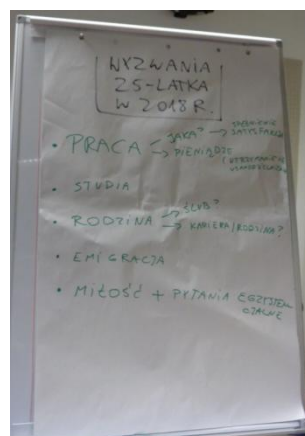 WYZWANIA
25-LATKA
W 2018 R.
• PRACA → JAKA? → SATYSFAKCJA
→ PIENIĄDZE
• STUDIA
• RODZINA → ŚLUB?
→ KARIERA/RODZINA?
• EMIGRACJA
• MIŁOŚĆ + PYTANIA EGZYSTEN
CJALNE